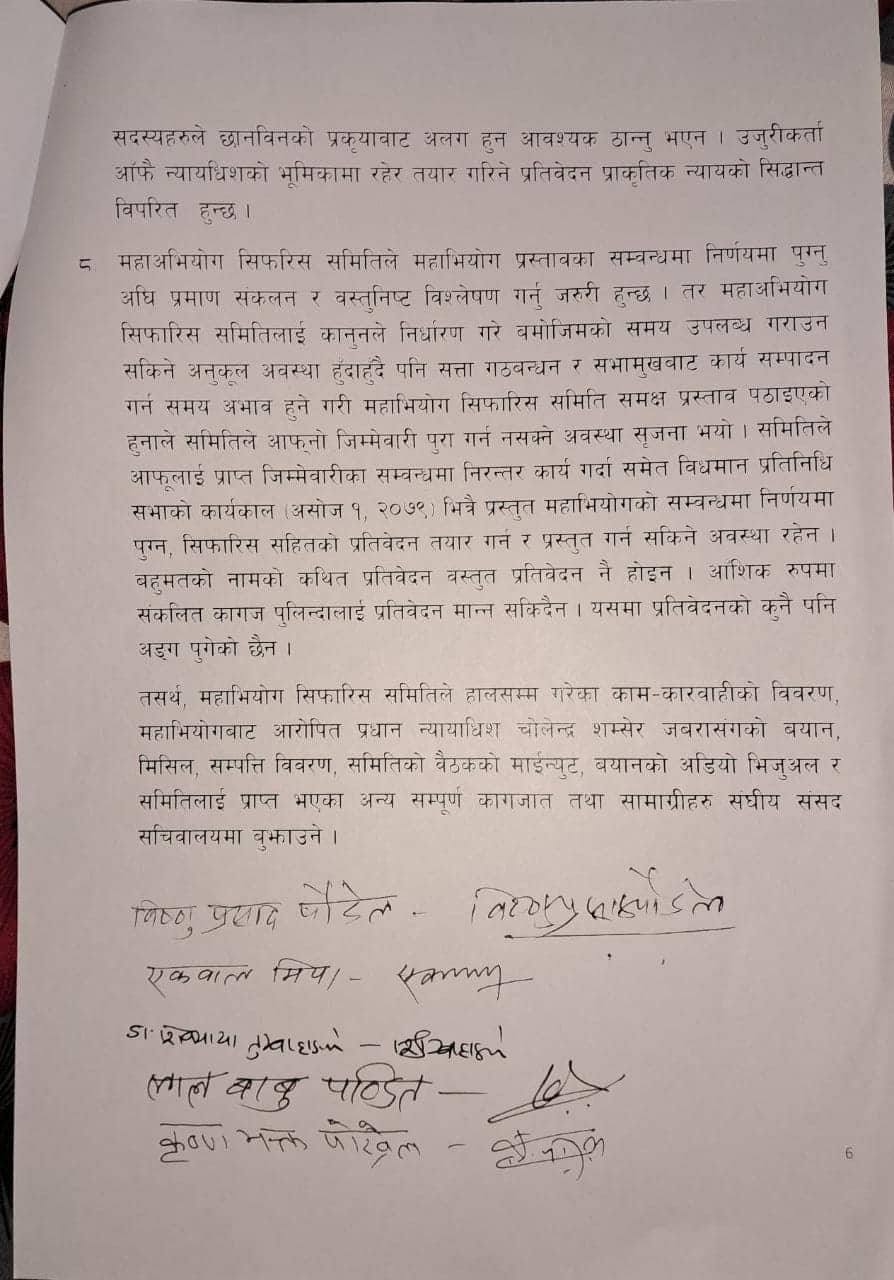 सदस्यहरुले छानविनको प्रकृयाबाट अलग हुन आवश्यक ठान्नु भएन । उजुरीकर्ता
आँफै न्यायधिशको भूमिकामा रहेर तयार गरिने प्रतिवेदन प्राकृतिक न्यायको सिद्धान्त
विपरित हुन्छ ।
८ महाअभियोग सिफारिस समितिले महाभियोग प्रस्तावका सम्वन्धमा निर्णयमा पुग्नु
अघि प्रमाण संकलन र वस्तुनिष्ट विश्लेषण गर्नु जरुरी हुन्छ । तर महाअभियोग
सिफारिस समितिलाई कानुनले निर्धारण गरे वमोजिमको समय उपलब्ध गराउन
सकिने अनुकूल अवस्था हुँदाहुँदै पनि सत्ता गठवन्धन र सभामुखबाट कार्य सम्पादन
गर्न समय अभाव हुने गरी महाभियोग सिफारिस समिति समक्ष प्रस्ताव पठाइएको
हुनाले समितिले आफ्नो जिम्मेवारी पुरा गर्न नसक्ने अवस्था सृजना भयो । समितिले
आफूलाई प्राप्त जिम्मेवारीका सम्वन्धमा निरन्तर कार्य गर्दा समेत विधमान प्रतिनिधि
सभाको कार्यकाल (असोज १, २०७९) भित्रै प्रस्तुत महाभियोगको सम्वन्धमा निर्णयमा
पुग्न, सिफारिस सहितको प्रतिवेदन तयार गर्न र प्रस्तुत गर्न सकिने अवस्था रहेन ।
बहुमतको नामको कथित प्रतिवेदन वस्तुत प्रतिवेदन नै होइन । आँशिक रुपमा
संकलित कागज पुलिन्दालाई प्रतिवेदन मान्न सकिदैन । यसमा प्रतिवेदनको कुनै पनि
अड्ग पुगेको छैन ।
तसर्थ, महाभियोग सिफारिस समितिले हालसम्म गरेका काम-कारवाहीको विवरण,
महाभियोगबाट आरोपित प्रधान न्यायाधिश चोलेन्द्र शम्सेर जबरासंगको बयान,
मिसिल, सम्पत्ति विवरण, समितिको वैठकको माईन्युट, बयानको अडियो भिजुअल र
समितिलाई प्राप्त भएका अन्य सम्पूर्ण कागजात तथा सामाग्रीहरु संघीय संसद
सचिवालयमा बुझाउने ।
विष्णु प्रसाद पौडेल - विष्णुप्रसाद पौडेल
एकवाल मिया -
डा.
लाल बाबु पण्डित -
कृष्ण भक्त पोखेल -
6